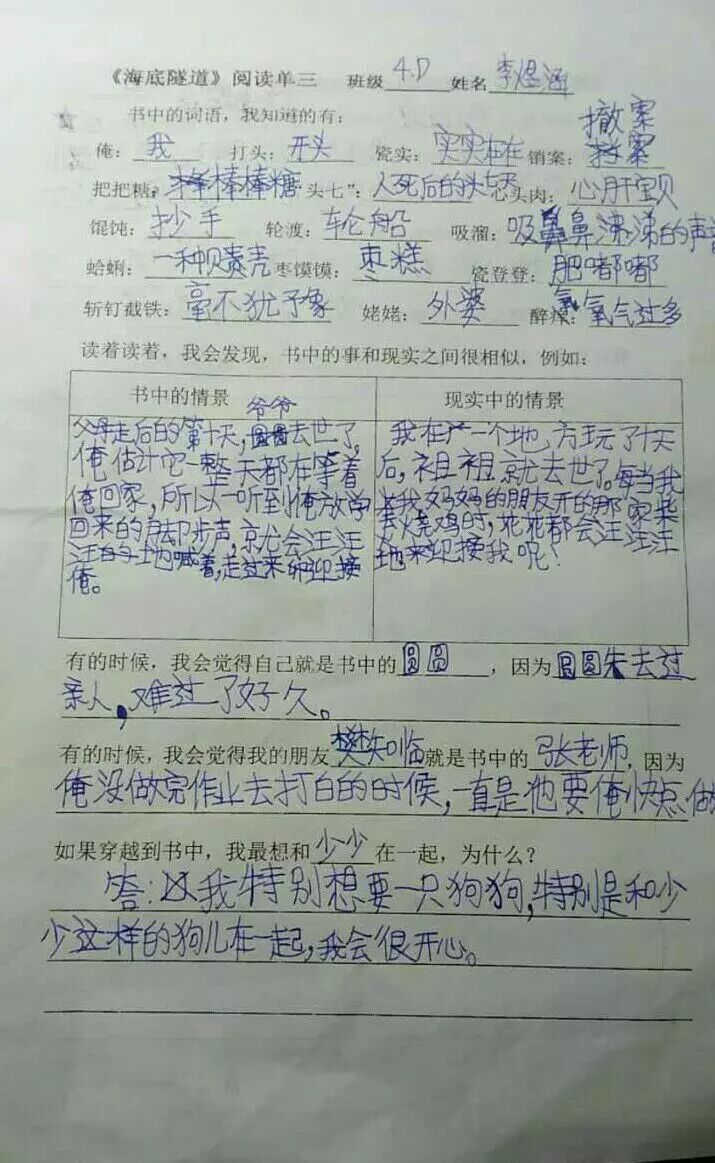 《海底隧道》阅读单三 班级 4.D 姓名 李煜涵
书中的词语，我知道的有：
撤案
俺：我 打头：开头 瓷实：实实在在 销案：
把把糖：棒棒糖 头七”：人死后的头七天 心头肉：心肝宝贝
馄饨：抄手 轮渡：轮船 吸溜：吸鼻涕的声音
蛤蜊：一种贝类壳 枣馍馍：枣糕 瓷登登：肥嘟嘟
斩钉截铁：毫不犹予象 姥姥：外婆 醉辣：氧气过多
读着读着，我会发现，书中的事和现实之间很相似，例如：
书中的情景 现实中的情景
爷爷
父母走后的第十天，去世了。
俺估计它一整天都在等着
俺回家，所以一听到俺放学
回来的脚步声，就会汪汪
汪地喊着，走过来迎接
俺。
我在一个地方玩了十天
后，祖祖就去世了。每当我
去我妈妈的朋友开的那家柴
火烧鸡时，花花都会汪汪汪
地来迎接我呢！
有的时候，我会觉得自己就是书中的圆圆，因为圆圆失去过
亲人，难过了好久。
有的时候，我会觉得我的朋友樊知临就是书中的张老师，因为
俺没做完作业去打白的时候，一直是他要俺快点做
如果穿越到书中，我最想和少少在一起，为什么？
答：我特别想要一只狗狗，特别是和少
少这样的狗儿在一起，我会很开心。